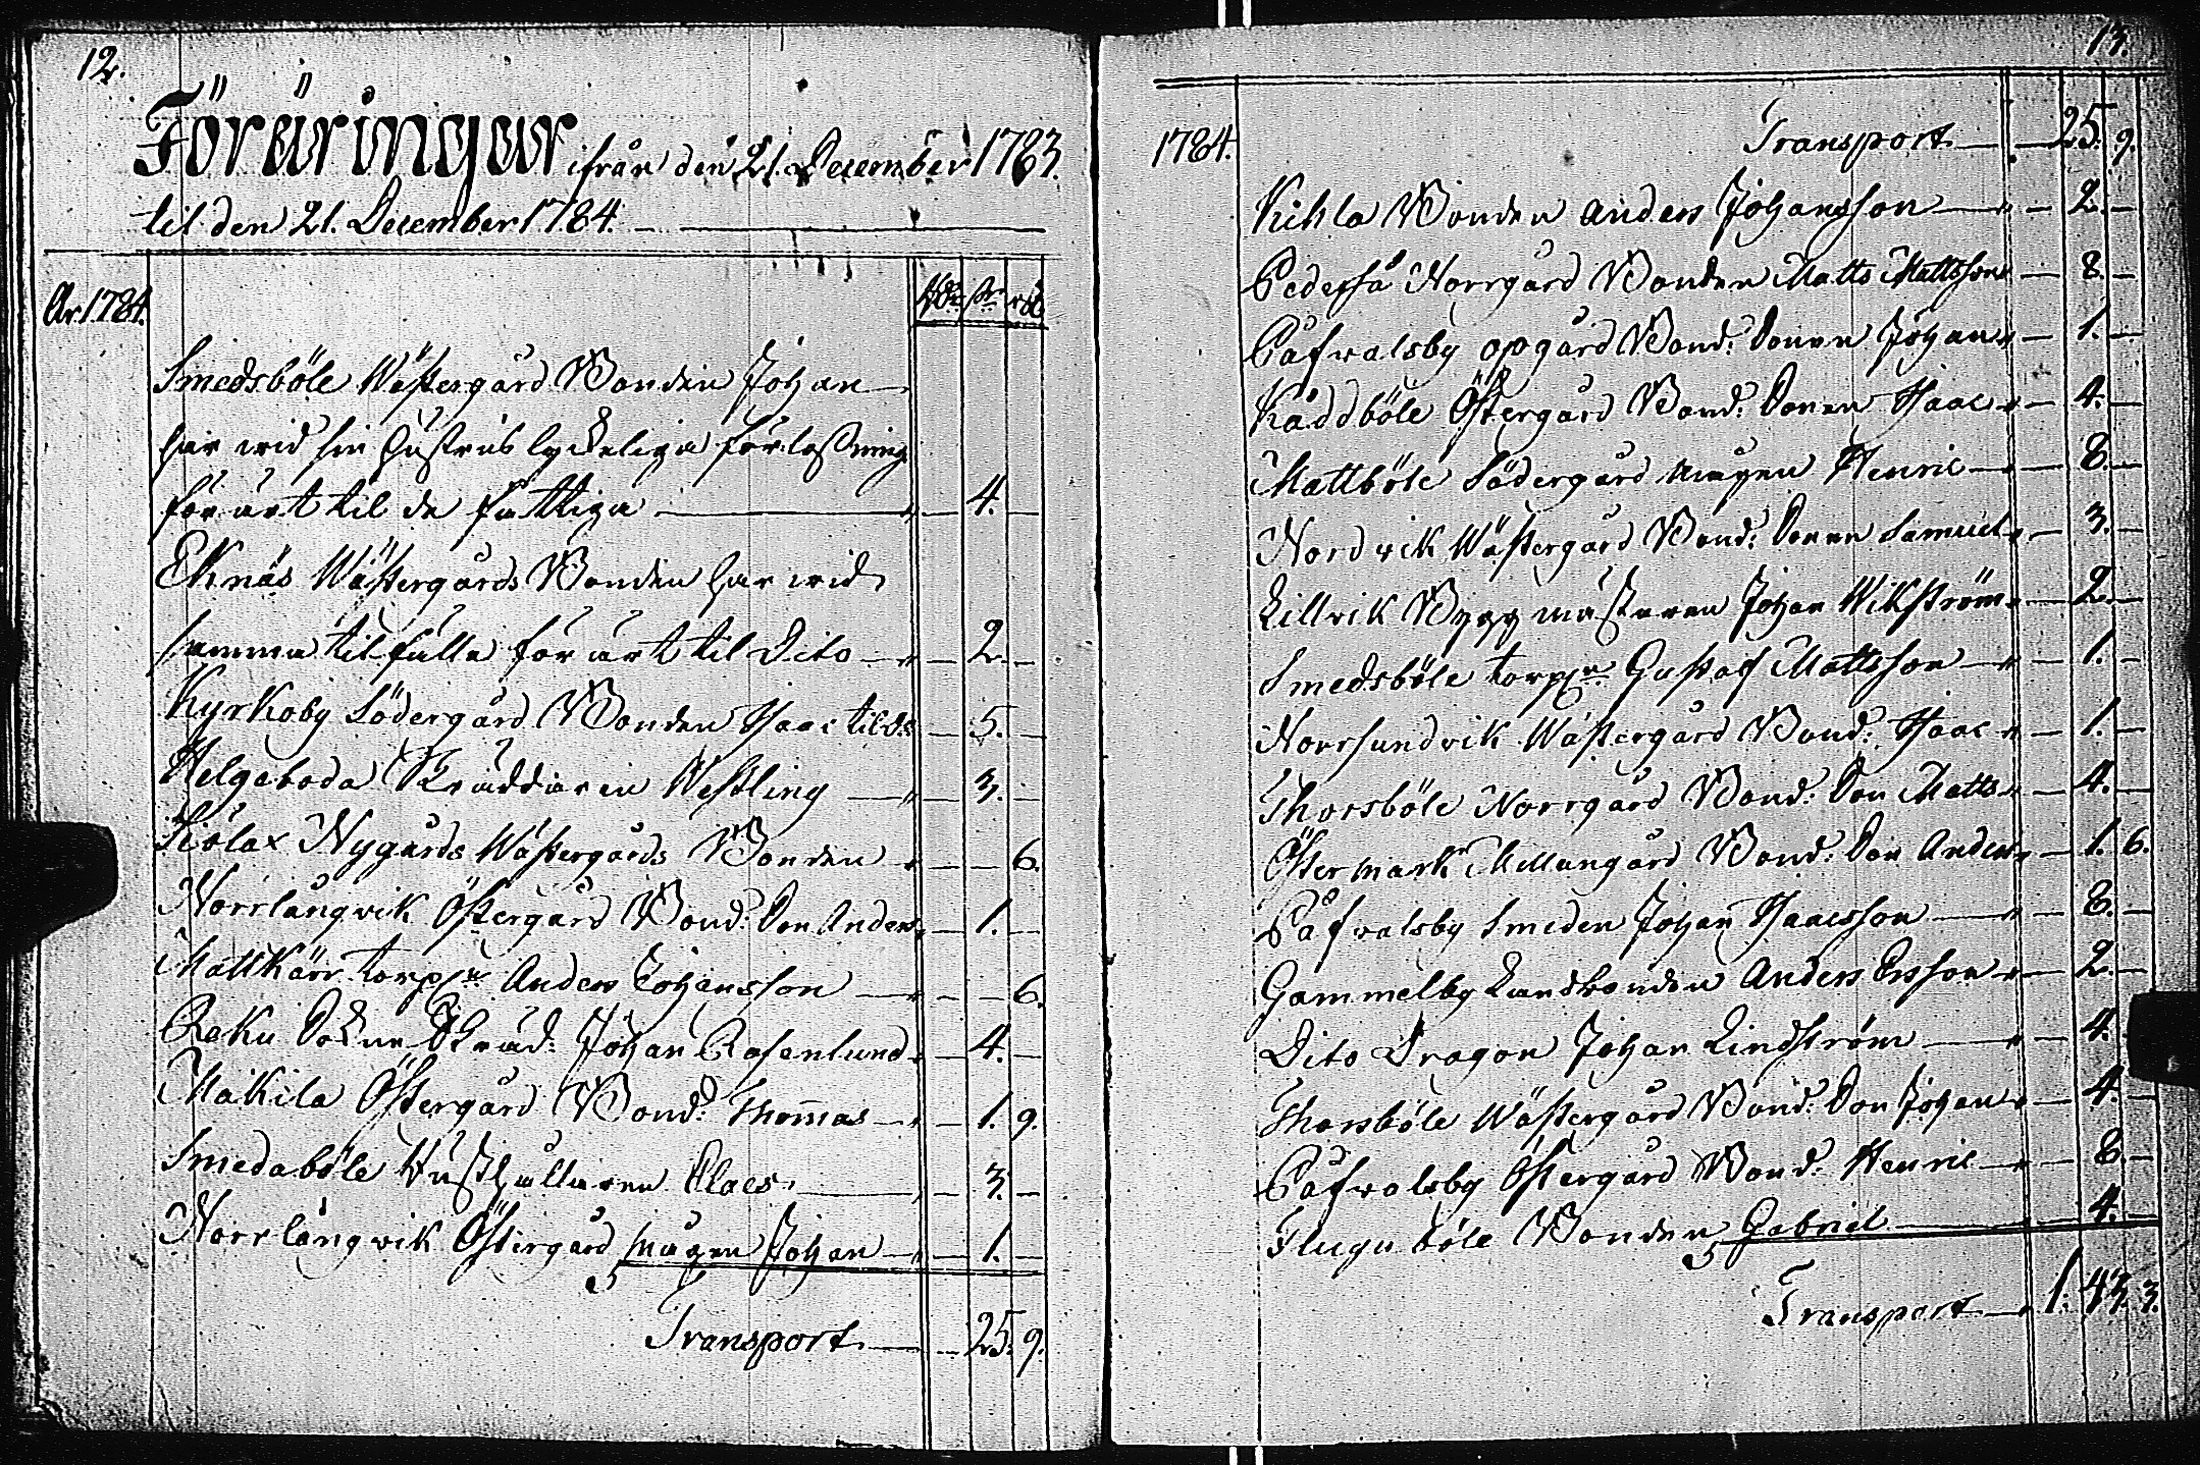 12.
Föräringar ifrån den 21. December 1783.
til den 21. December 1784.
År 1784.
Smedsböle Wästergård Bonden Johan
har wid sin hustrus lyckeliga förlossning
förärt til de fattiga — 4. —
Eknäs Wästergårds Bonden har wid
samma tilfälle förärt til Dito — 2. —
Kyrkoby Södergård Bonden Isaac til do — 5. —
Helgaboda Skräddaren Westling — 3. —
Skiölax Nygårds Wästergårds Bonden — — 6.
Norrlångvik Östergård Bond: Son Anders — 1. —
Mattkärr torp: Anders Johansson — — 6.
Reku Sokne Skräd: Johan Rosenlund — 4. —
Makila Östergård Bond: Thomas — 1. 9.
Smedsböle Rusthållaren Claes — 3. —
Norrlångvik Östergård mågen Johan — 1. —
Transport — 25. 9.
13.
1784. Transport — 25. 9.
Kihla Bonden Anders Johansson — 2. —
Pedersså Norrgård Bonden Matts Mattsson — 8. —
Påfvalsby opgård Bond: Sonen Johan — 1. —
Kåddböle Östergård Bond: Sonen Isaac — 4. —
Mattböle Södergård mågen Henric — 8. —
Nordvik Wästergård Bond: Sonen Samuel — 3. —
Lillvik Byggmästaren Johan Wikström — 2. —
Smedsböle torp: Gustaf Mattsson — 1. —
Norrsundvik Wästergård Bond: Isaac — 1. —
Thorsböle Norrgård Bond: Son Matts — 4. —
Östermark Mellangård Bond: Son Anders — 1. 6.
Påfvalsby Smeden Johan Isaacsson — 8. —
Gammelby Landbonden Anders Ersson — 2. —
Dito Dragon Johan Lindström — 4. —
Thorsböle Wästergård Bond: Son Johan — 4. —
Påfvalsby Östergård Bond: Henric — 8. —
Flugu böle Bonden Gabriel — 4. —
Transport — 1. 43. 3.